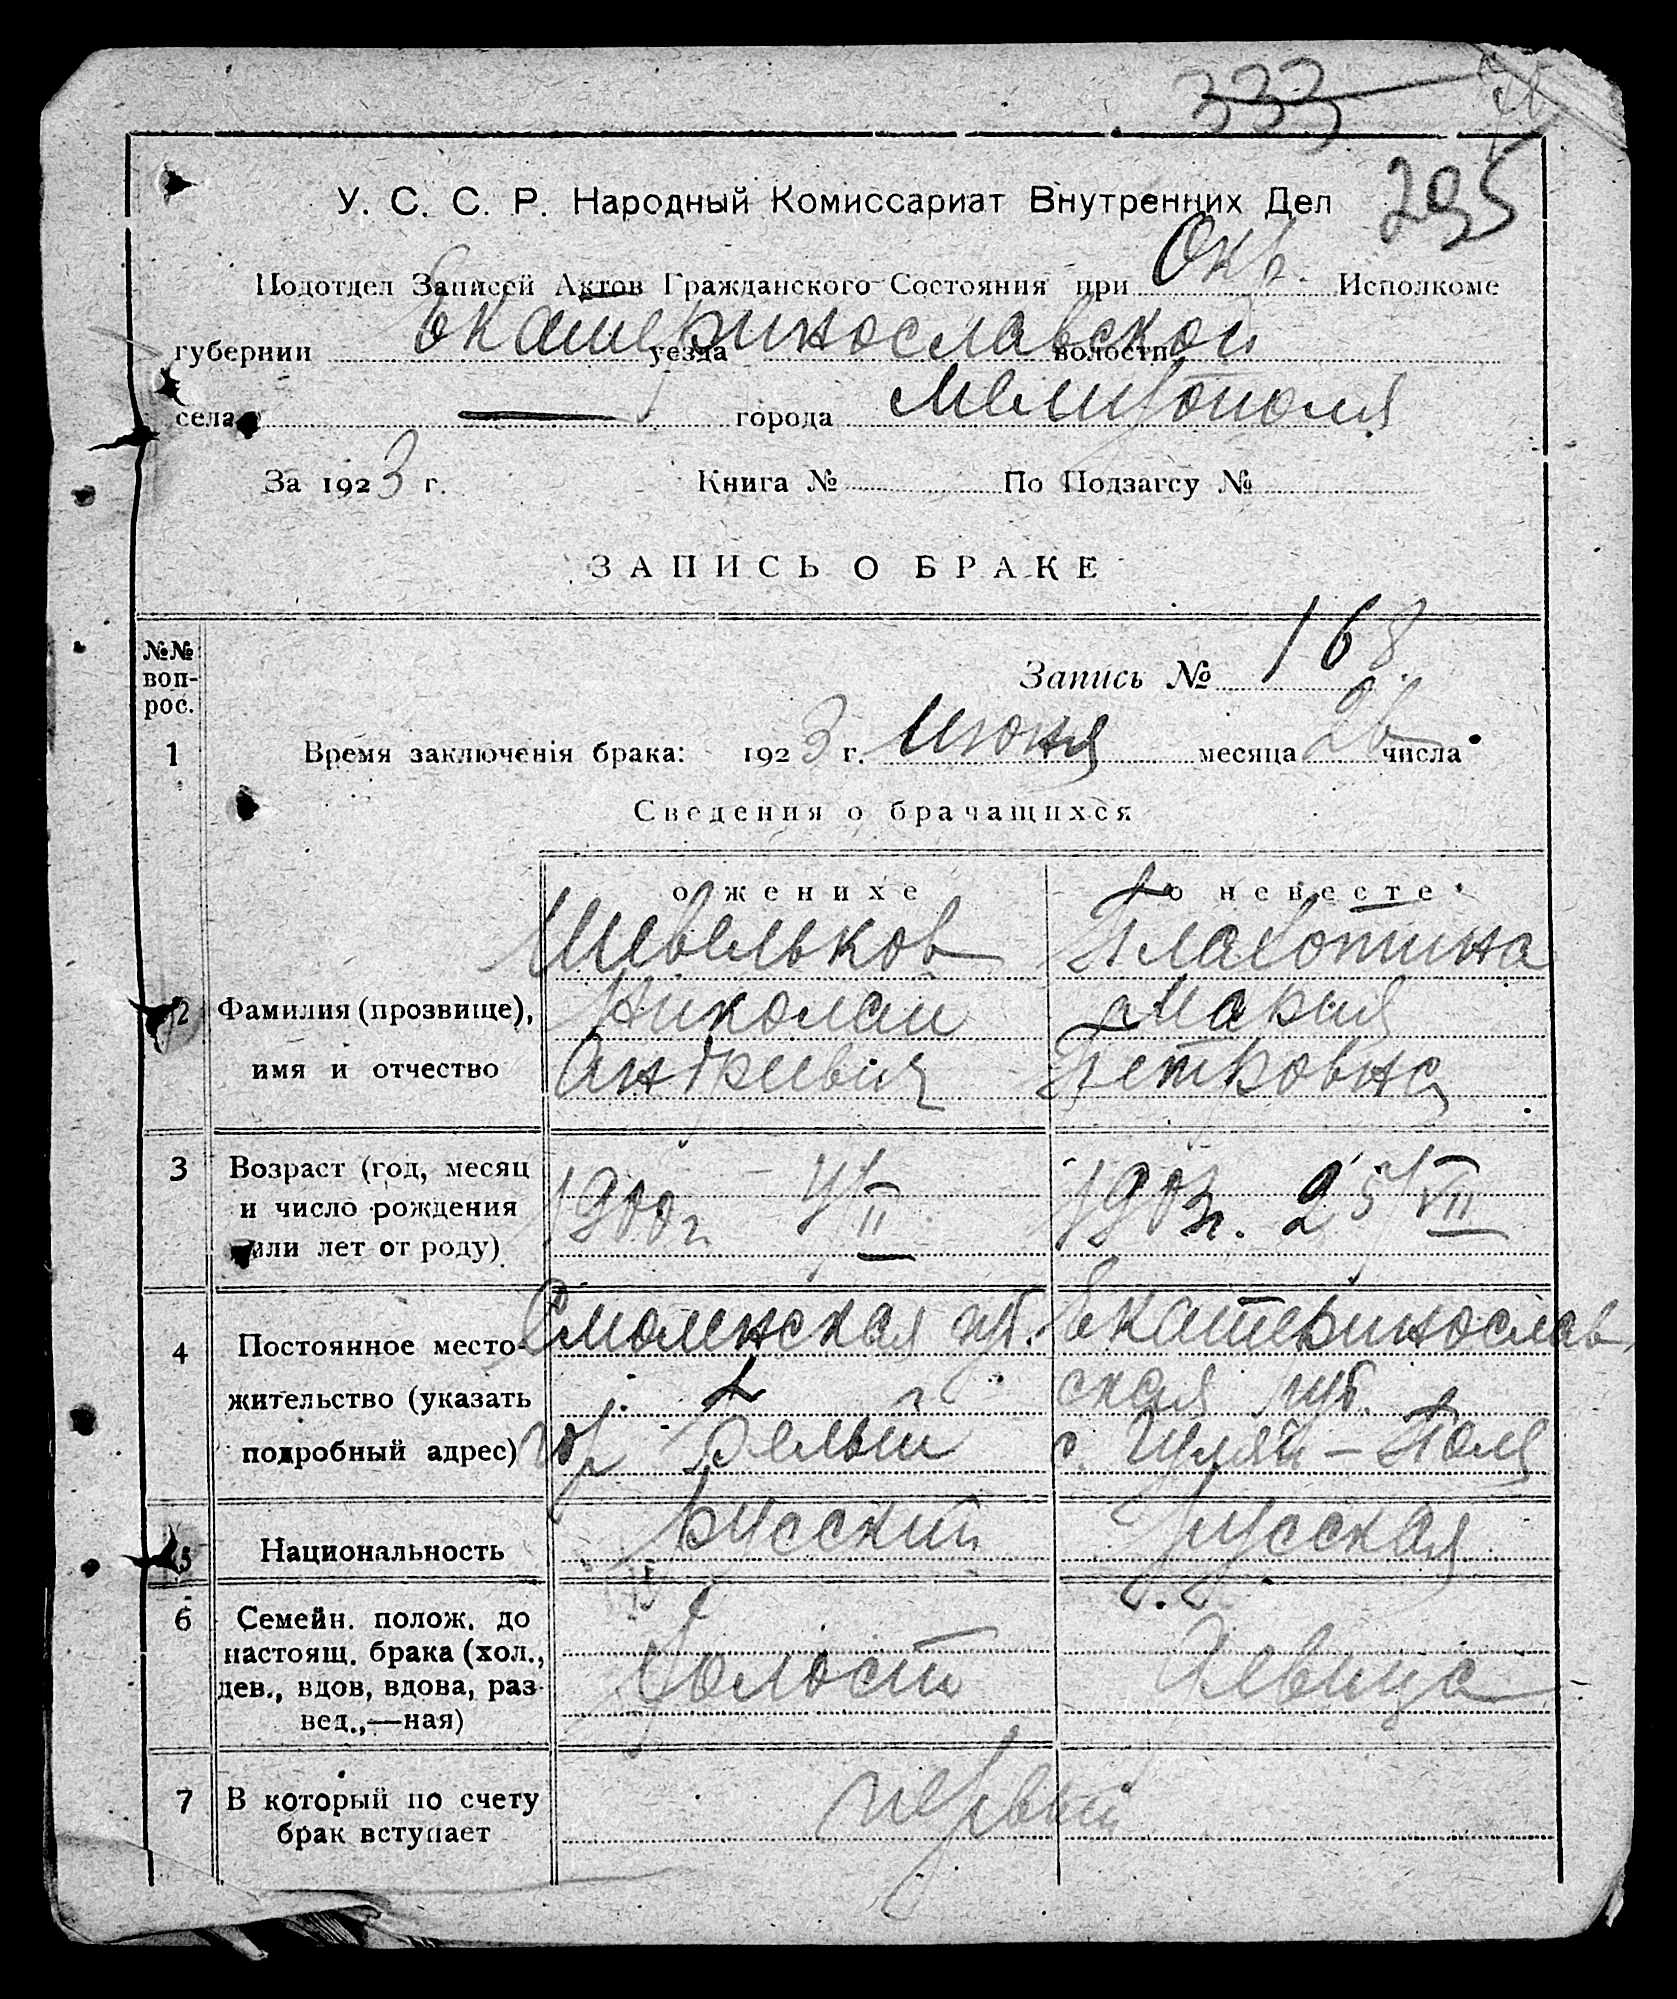 333
295
У. С. С. Р. Народный Комиссариат Внутренних Дел
Подотдел Записей Актов Гражданского Состояния при Окр. Исполкоме
губернии Екатеринославской уезда волости
села — города Мелитополя
За 1923 г. Книга № По Подзагсу №
ЗАПИСЬ О БРАКЕ
№№ воп-
рос.
Запись № 168.
1 Время заключенія брака: 1923 г. Июня месяца 26 числа
Сведения о брачащихся
о женихе о невесте
Шевельков Плахотина
2 Фамилия (прозвище), Николай Мария
имя и отчество Андреевич Петровна
3 Возраст (год, месяц
и число рождения 1900 г. 4/II 1903 г. 25/VII
или лет от роду)
Смоленская губ. Екатеринослав
4 Постоянное место-
жительство (указать ская губ.
подробный адрес) гор Белый с. Гуляй-Поля
5 Национальность русский русская
6 Семейн. полож. до
настоящ. брака (хол.,
дев., вдов, вдова, раз- Холост Девица
вед.,—ная)
7 В который по счету первый
брак вступает